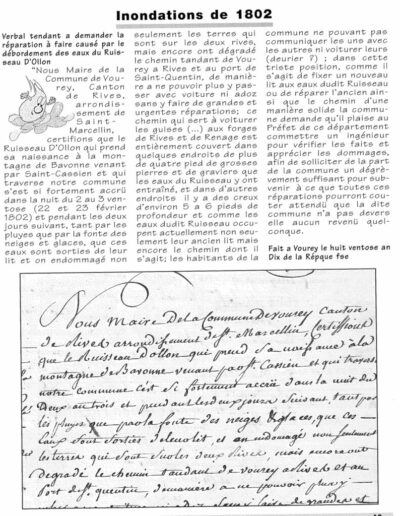 Inondations de 1802
Verbal tendant a demander la
réparation à faire causé par le
débordement des eaux du Ruis-
seau D'Ollon
"Nous Maire de la
Commune de Vou-
rey, Canton
de Rives,
arrondis-
sement de
Saint-
Marcellin,
certifions que le
Ruisseau D'Ollon qui prend
sa naissance à la mon-
tagne de Bavonne venant
par Saint-Cassien et qui
traverse notre commune
s'est si fortement accrü
dans la nuit du 2 au 3 ven-
tose (22 et 23 février
1802) et pendant les deux
jours suivant, tant par les
pluyes que par la fonte des
neiges et glaces, que ces
eaux sont sorties de leur
lit et on endommagé non
seulement les terres qui
sont sur les deux rives,
mais encore ont dégradé
le chemin tandant de Vou-
rey a Rives et au port de
Saint-Quentin, de maniè-
re a ne pouvoir plus y pas-
ser avec voiture ni adoz
sans y faire de grandes et
urgentes réparations; ce
chemin qui sert à voiturer
les guises (...) aux forges
de Rives et de Renage est
entièrement couvert dans
quelques endroits de plus
de quatre pied de grosses
pierres et de graviers que
les eaux du Ruisseau y ont
entraîné, et dans d'autres
endroits il y a des creux
d'environ 5 a 6 pieds de
profondeur et comme les
eaux dudit Ruisseau occu-
pent actuellement non seu-
lement leur ancien lit mais
encore le chemin dont il
s'agit; les habitants de la
commune ne pouvant pas
communiquer les uns avec
les autres ni voiturer leurs
(deurier ?) ; dans cette
triste position, comme il
s'agit de fixer un nouveau
lit aux eaux dudit Ruisseau
ou de réparer l'ancien ain-
si que le chemin d'une
manière solide la commu-
ne demande qu'il plaise au
Préfet de ce département
commettre un ingénieur
pour vérifier les faits et
apprécier les dommages,
afin de solliciter de la part
de la commune un dégrè-
vement suffisant pour sub-
venir à ce que toutes ces
réparations pourront cou-
ter attendu que la dite
commune n'a pas devers
elle aucun revenu quel-
conque.
Fait a Vourey le huit ventose an
Dix de la Répque fse
Nous Maire De la Commune De vourey Canton
de Rives arrondissement de St. Marcellin, Certiffions
que le Ruisseau D'ollon qui prend Sa naissance a la
montagne de Bavonne venant par St. Cassien et qui traverse
notre Commune s'est Si fortement accrü dans la nuit du
Deux au trois et pendant les deux jours Suivant tant par
les pluyes que par la fonte des neiges & glaces, que ces
Eaux Sont Sorties de leur lit, et on endomagé non Seulement
les terres qui Sont Sur les deux Rives, mais encore ont
degradé le chemin tandant de vourey a Rives et au
Port de St. quentin, de maniere a ne pouvoir plus y